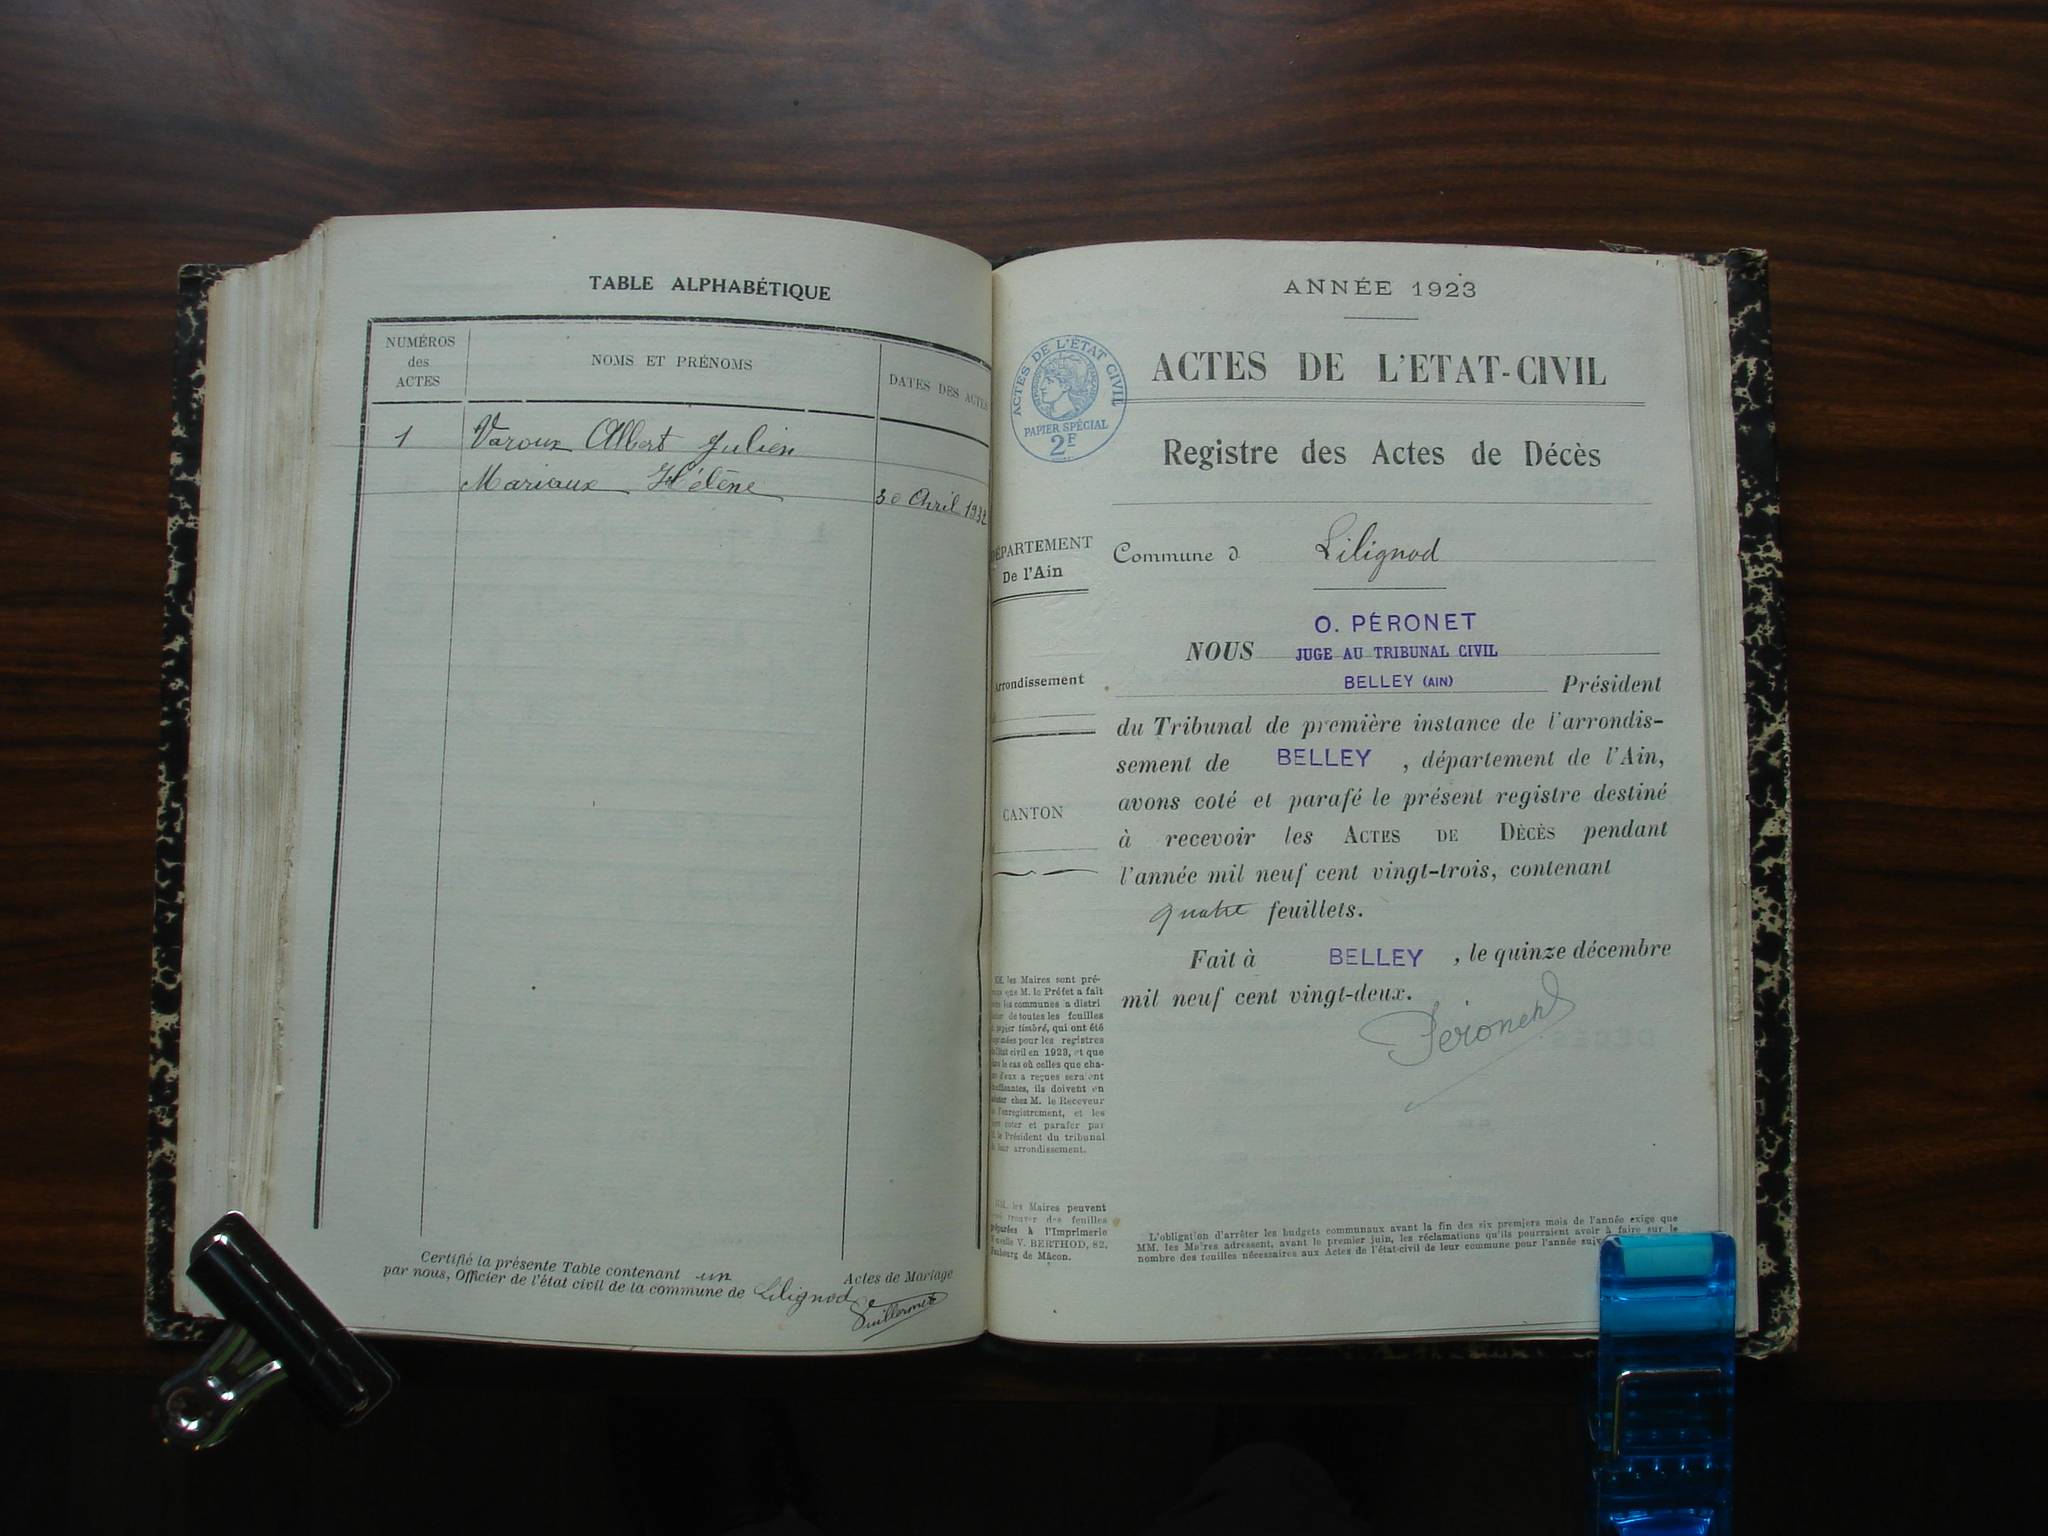 TABLE ALPHABÉTIQUE
NUMÉROS
des
ACTES
NOMS ET PRÉNOMS
DATES DES ACTES
1
Varoux Albert Julien
Mariaux Hélène
30 Avril 1932
Certifié la présente Table contenant un Actes de Mariage
par nous, Officier de l'état civil de la commune de Lilignod
ANNÉE 1923
ACTES DE L'ÉTAT CIVIL
PAPIER SPÉCIAL
2F
ACTES DE L'ETAT-CIVIL
Registre des Actes de Décès
DÉPARTEMENT
De l'Ain
Commune d Lilignod
O. PÉRONET
NOUS JUGE AU TRIBUNAL CIVIL
BELLEY (AIN) Président
Arrondissement
du Tribunal de première instance de l'arrondis-
sement de BELLEY, département de l'Ain,
avons coté et parafé le présent registre destiné
CANTON
à recevoir les ACTES DE DÉCÈS pendant
l'année mil neuf cent vingt-trois, contenant
quatre feuillets.
Fait à BELLEY, le quinze décembre
mil neuf cent vingt-deux.
Péronet
MM. les Maires sont pré-
que M. le Préfet a fait
les communes a distri
de toutes les feuilles
papier timbré, qui ont été
pour les registres
l'état civil en 1923, et que
le cas où celles que cha-
d'eux a reçues seraient
ils doivent en
chez M. le Receveur
l'enregistrement, et les
coter et parafer par
le Président du tribunal
leur arrondissement.
MM. les Maires peuvent
trouver des feuilles
préparées à l'Imprimerie
V. BERTHOD, 82,
Faubourg de Mâcon.
L'obligation d'arrêter les budgets communaux avant la fin des six premiers mois de l'année exige que
MM. les Maires adressent, avant le premier juin, les réclamations qu'ils pourraient avoir à faire sur le
nombre des feuilles nécessaires aux Actes de l'état-civil de leur commune pour l'année